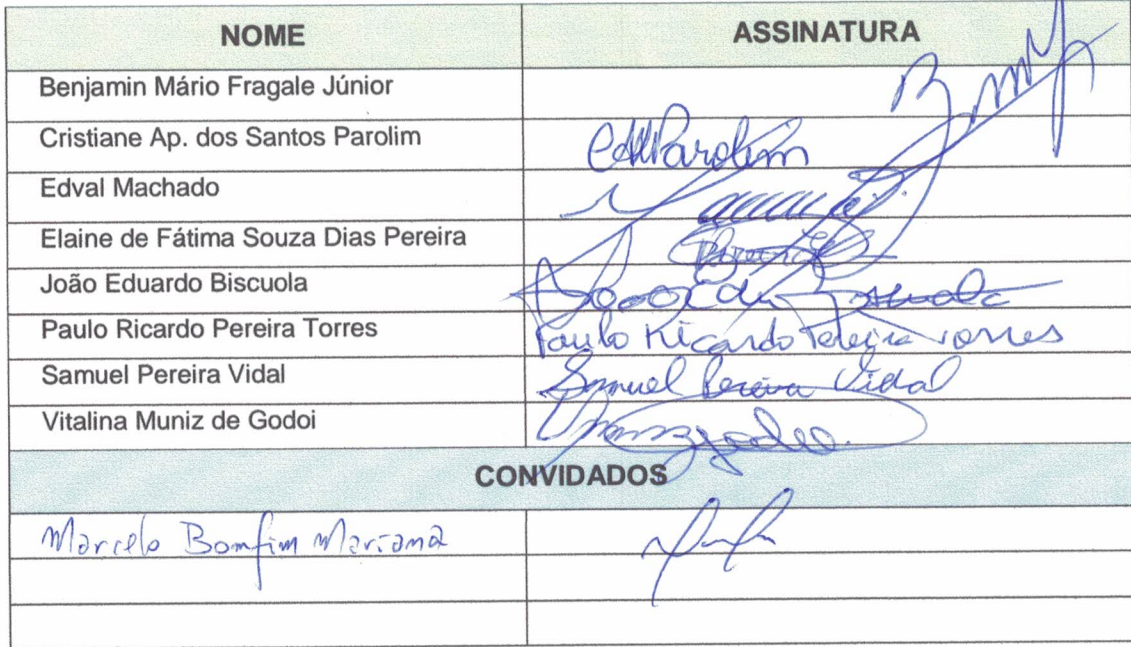 NOME ASSINATURA
Benjamin Mário Fragale Júnior
Cristiane Ap. dos Santos Parolim Parolim
Edval Machado
Elaine de Fátima Souza Dias Pereira
João Eduardo Biscuola
Paulo Ricardo Pereira Torres Paulo Ricardo Pereira Torres
Samuel Pereira Vidal Samuel Pereira Vidal
Vitalina Muniz de Godoi
CONVIDADOS
Marcelo Bomfim Mariana